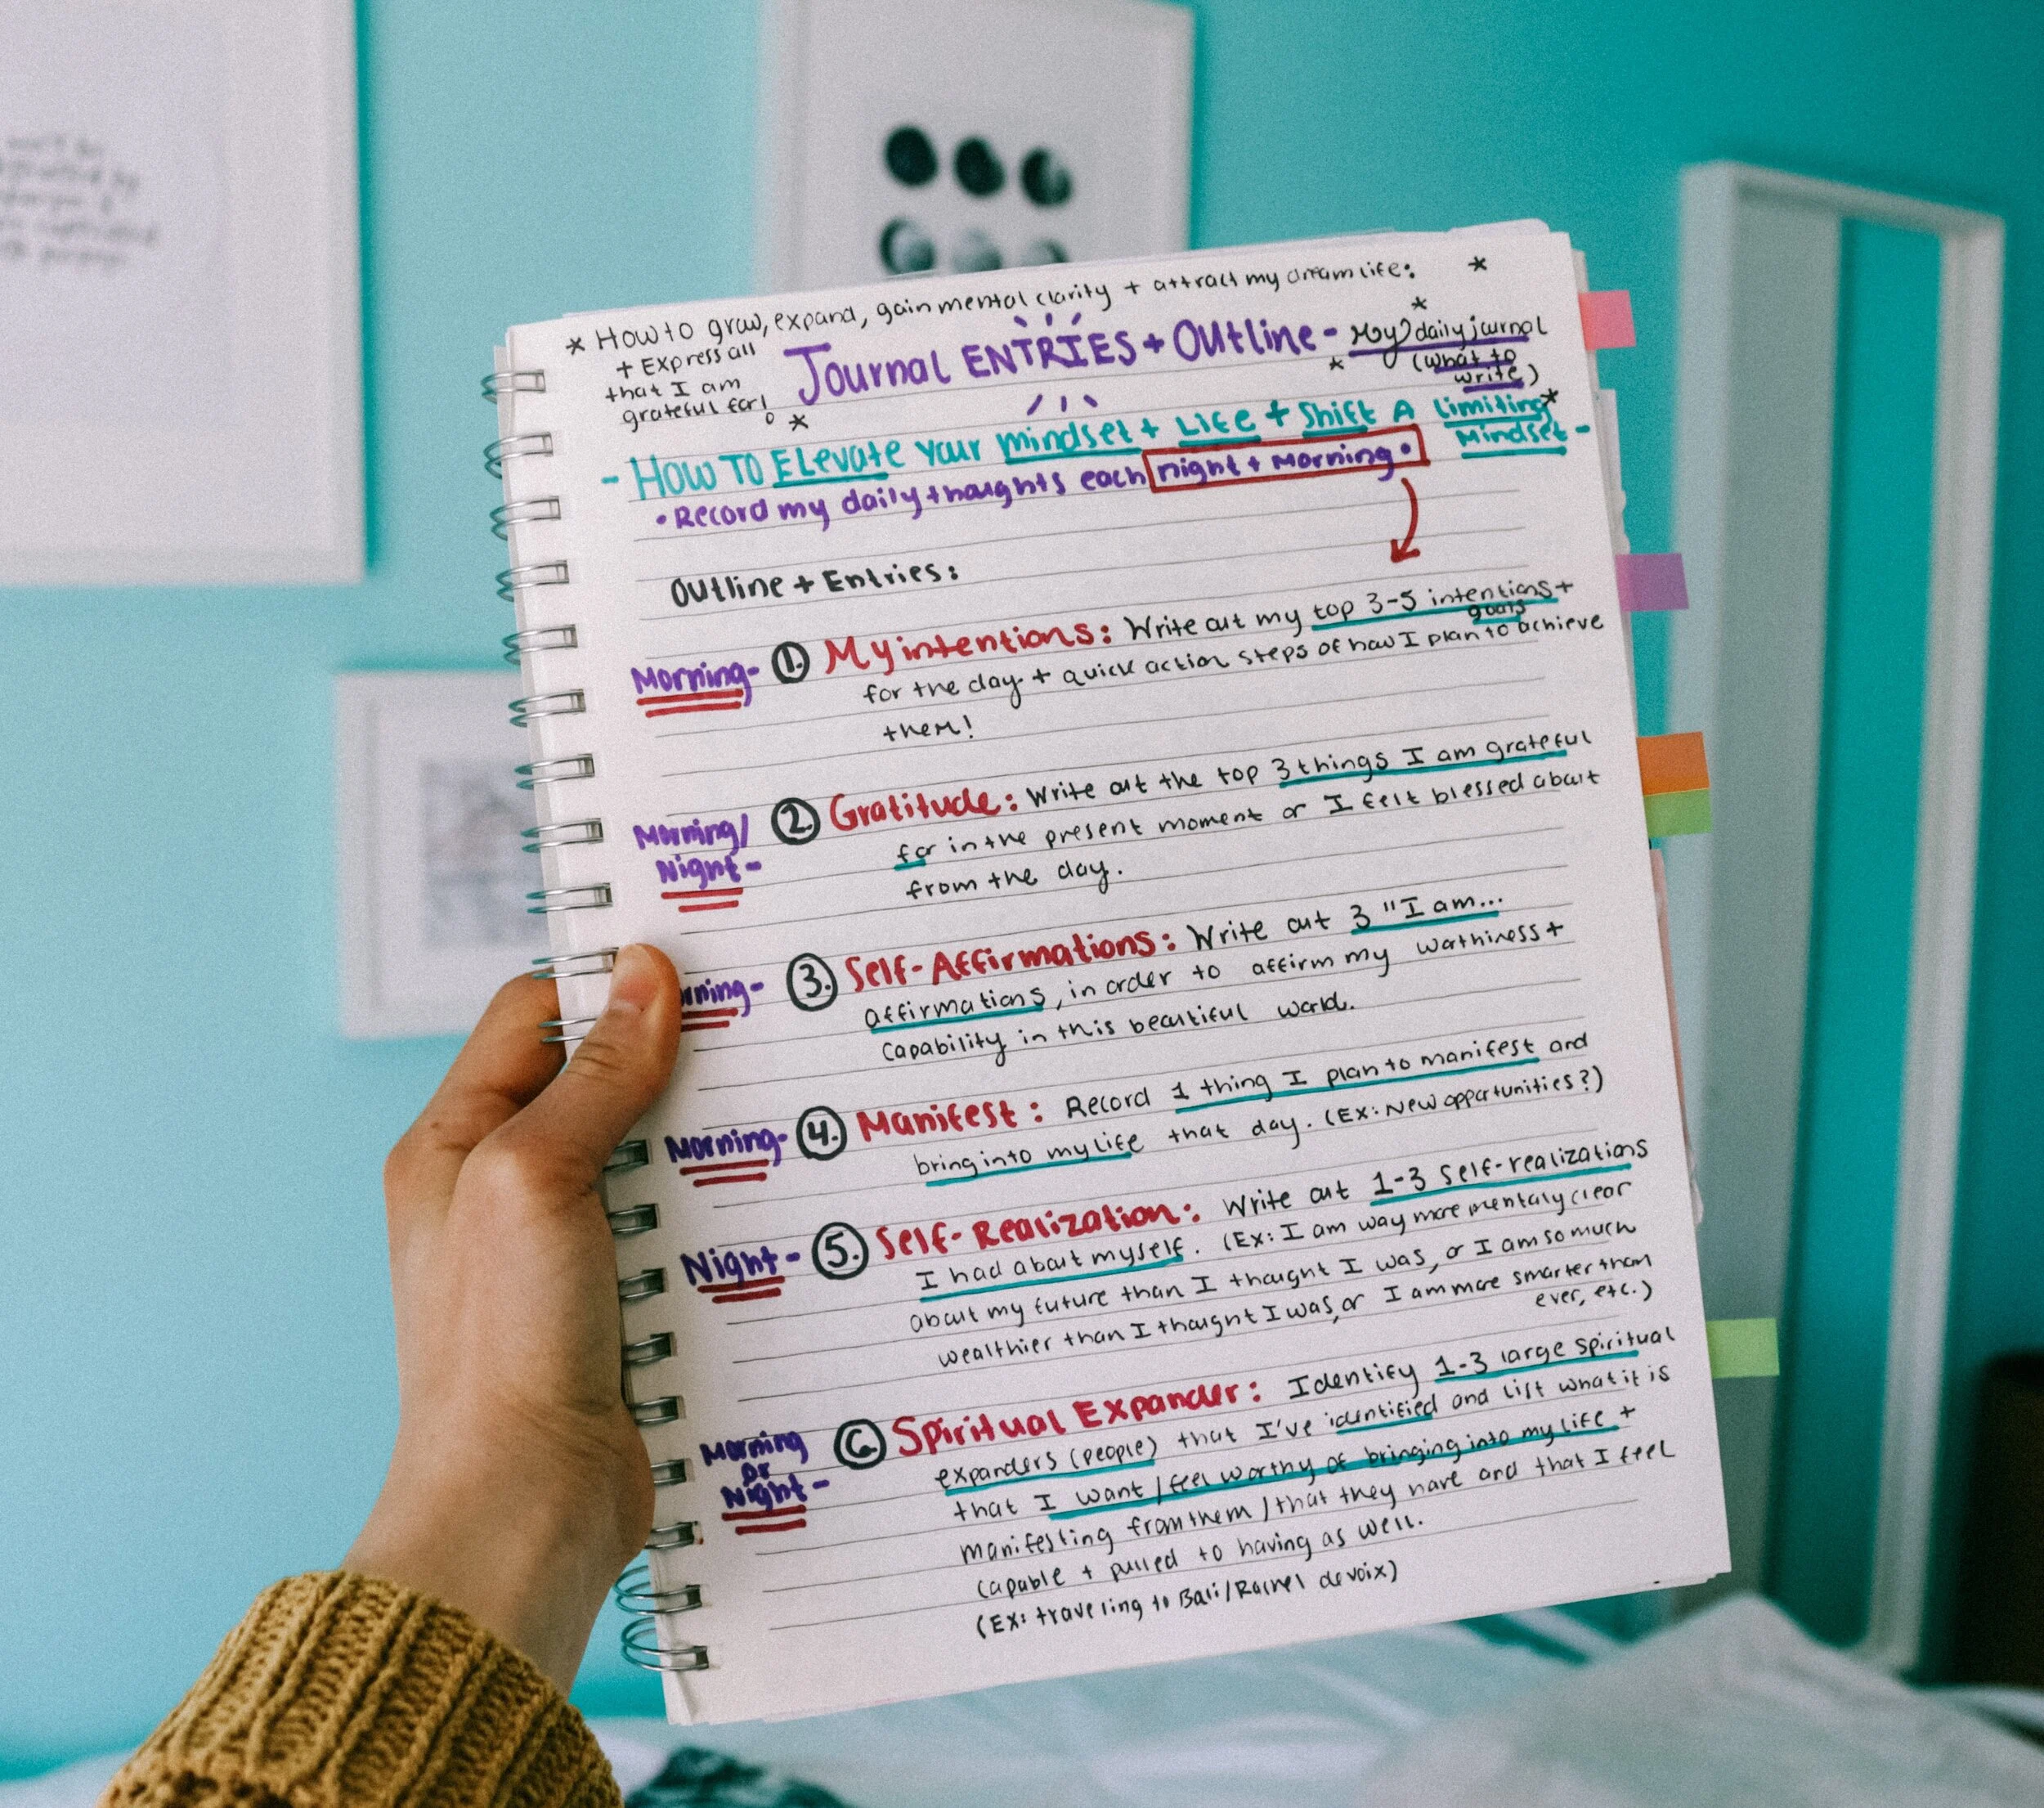 * How to grow, expand, gain mental clarity + attract my dream life: *
+ Express all
that I am
grateful for! *
Journal ENTRIES + Outline - My daily journal
(what to
write)
- How To Elevate your mindset + Life + Shift A limiting
Mindset -
• Record my daily thoughts each night + Morning •
Outline + Entries:
Morning- 1. My intentions: Write out my top 3-5 intentions +
goals
for the day + quick action steps of how I plan to achieve
them!
Morning/
Night- 2. Gratitude: Write out the top 3 things I am grateful
for in the present moment or I felt blessed about
from the day.
rning- 3. Self-Affirmations: Write out 3 "I am...
affirmations, in order to affirm my worthiness +
capability in this beautiful world.
Morning- 4. Manifest: Record 1 thing I plan to manifest and
bring into my life that day. (Ex: New opportunities?)
Night- 5. Self-Realization: Write out 1-3 self-realizations
I had about myself. (Ex: I am way more mentaly clear
about my future than I thought I was, or I am so much
wealthier than I thought I was, or I am more smarter than
ever, etc.)
Morning
or
Night- 6. Spiritual Expander: Identify 1-3 large spiritual
expanders (people) that I've identified and list what it is
that I want / feel worthy of bringing into my life +
manifesting from them / that they have and that I feel
capable + pulled to having as well.
(Ex: traveling to Bali/Rachel devoix)